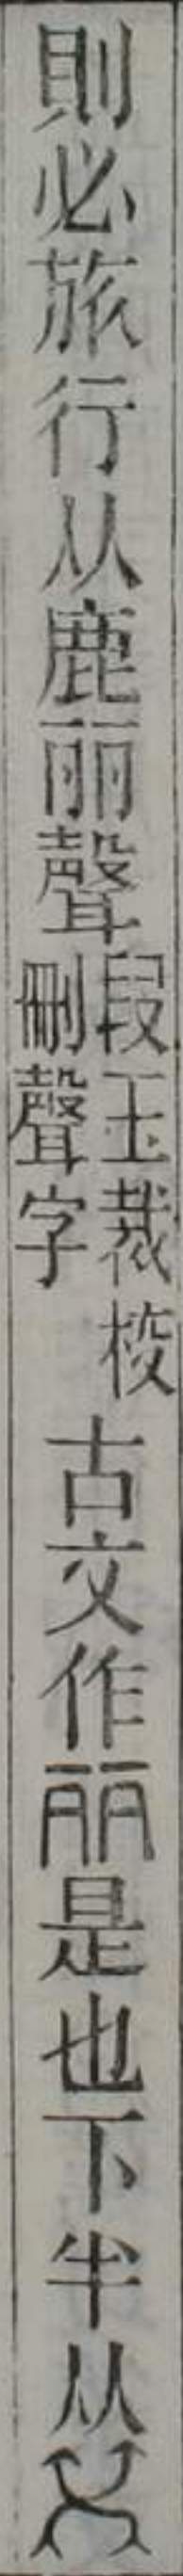 則必旅行从鹿丽聲
段玉裁校
刪聲字
古文作丽是也下半从